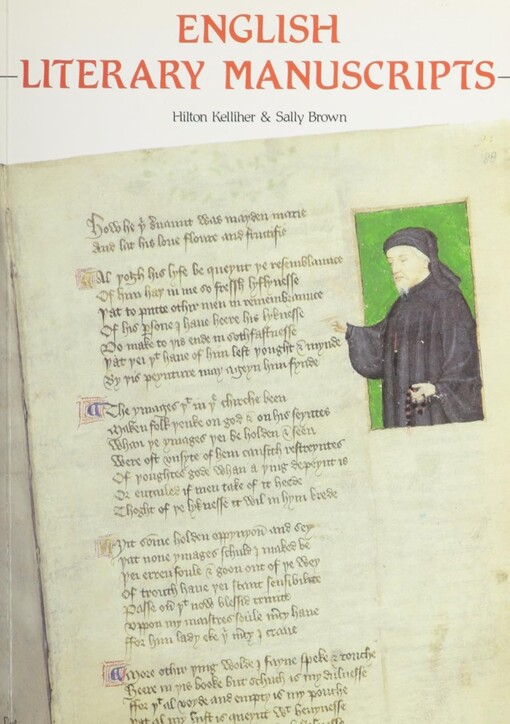 ENGLISH
LITERARY MANUSCRIPTS
Hilton Kelliher & Sally Brown
88
How he þͥ seruaunt was mayden marie
And lat his loue floure and fructifie
Al þogh his lyfe be queynt þe resemblaunce
Of him haþ in me so fressh lyflynesse
Þat to putte othir men in remembraunce
Of his ꝑsone I haue heere his lyknesse
Do make to þis ende in sothfastnesse
Þat þei þͭ haue of him lest þought & mynde
By þis peynture may ageyn him fynde
The ymages þͭ in þͤ chirche been
Maken folk þenke on god & on his seyntes
Whan þe ymages þei be holden & seen
Were oft vnsyte of hem causith restreyntes
Of þoughtes gode whan a þing depeynt is
Or entailed if men take of it heede
Thoght of þe lyknesse it wil in hym brede
Yit somme holden oppynyoun and sey
Þat none ymages schuld I maked be
Þei erren foule & goon out of þe wey
Of trouth haue þei scant sensibilite
Passe þͭ now blessid trinite
Vppon my maistres soule mͨy haue
ffor him lady eke þͥ mͨy I craue
More othir þing wolde I fayne speke & touche
Heere in þis booke but schuch is my dulnesse
ffor þͭ al voyde and empty is my pouche
Þat al my lust is queynt wͭ heuynesse